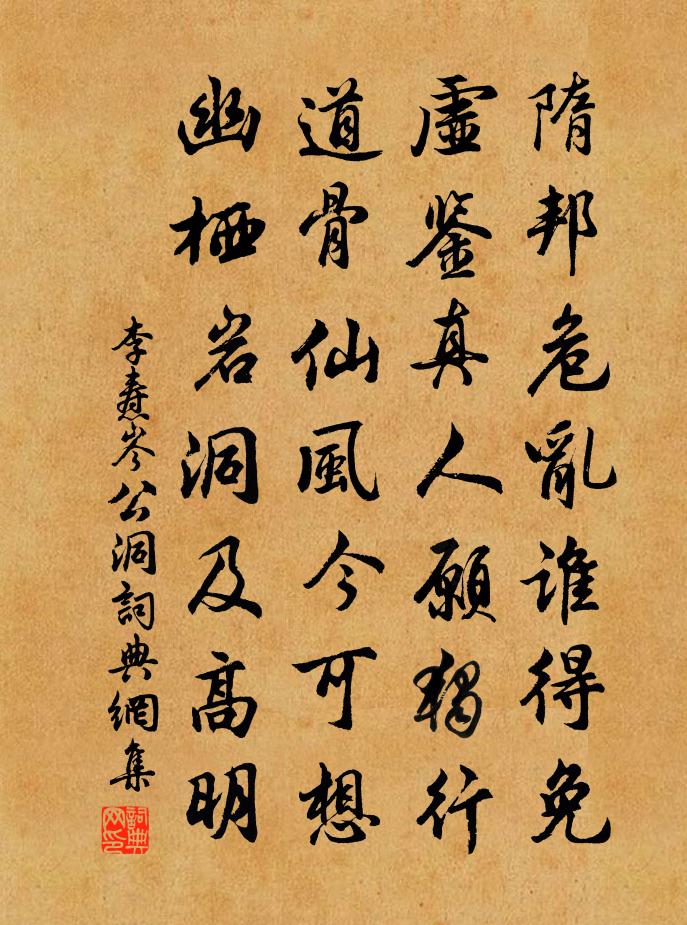 隋邦危亂誰得免
虛鉴真人願獨行
道骨仙風今可想
幽栖岩洞及高明
李燾岑公洞詞典網集
詞典网印